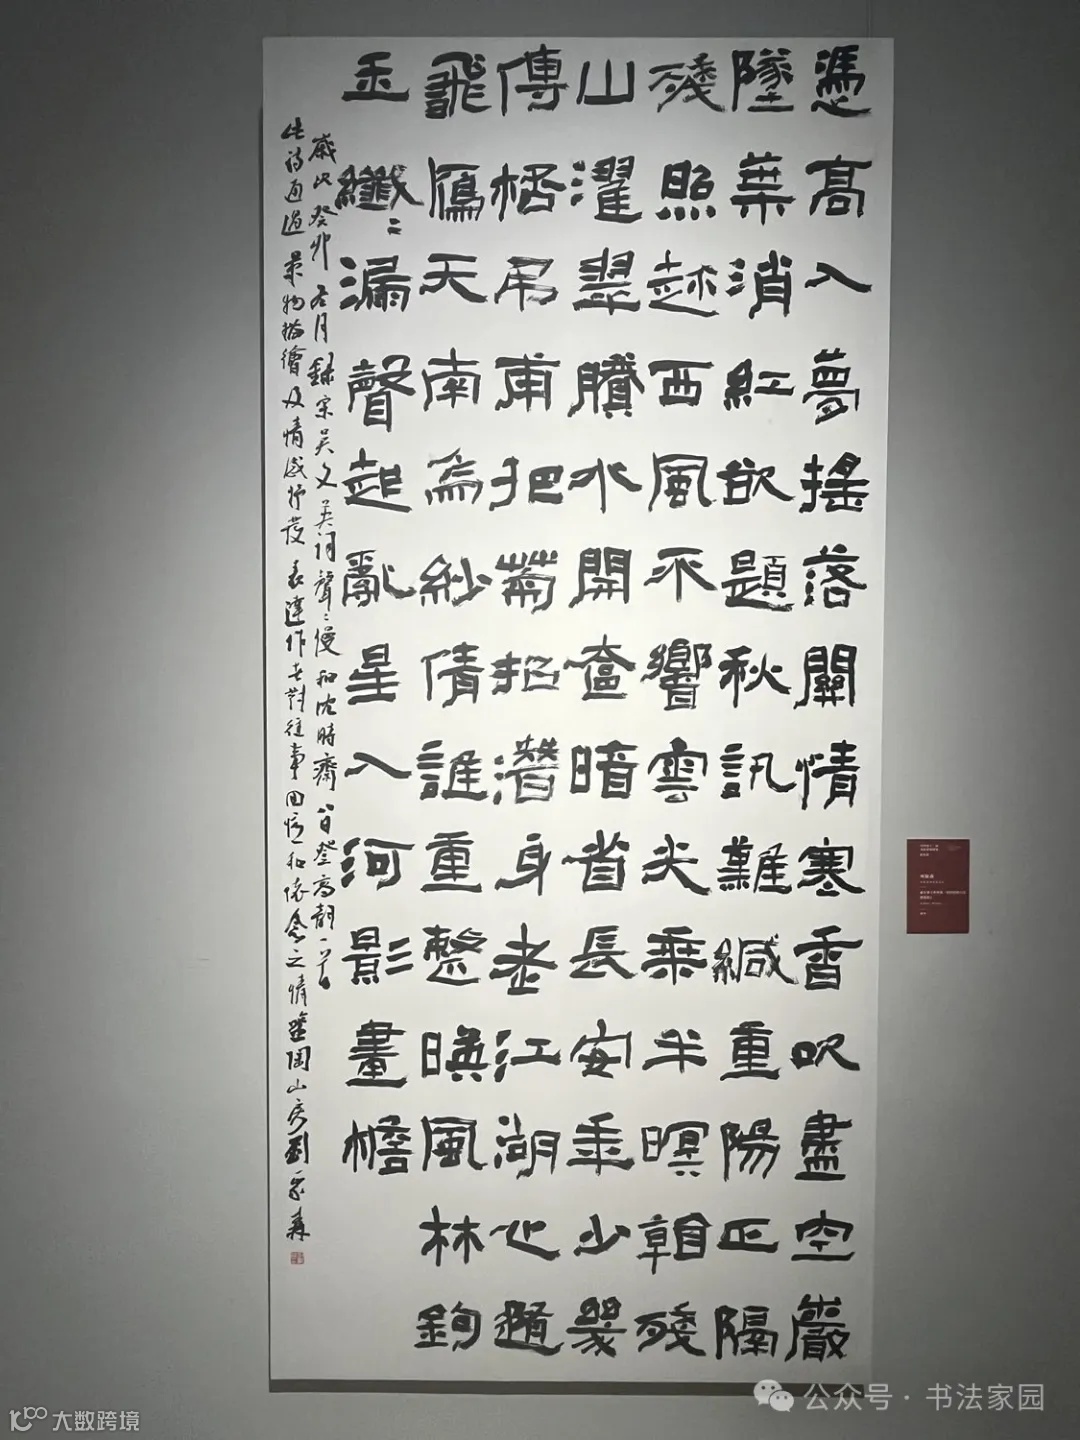 憑高入夢搖落關情寒香吹盡空巖
墜葉消紅欲題秋訊難緘重陽正隔
殘照趂西風不響雲尖乘半暝看殘
山濯翠賸水開奩暗省長安年少幾
傳桮吊甫把菊招潛身老江湖心隨
飛鴈天南烏紗倩誰重整暎風林鉤
玉纖〻漏聲起亂星入河影畫檐
歲次癸卯冬月錄宋吳文英詞聲〻慢和沈時齋八日登高韻一首
此詩通過景物描繪及情感抒發表達作者對往事回憶和懷念之情 陶山房劉
公众号·书法家园
大数跨境